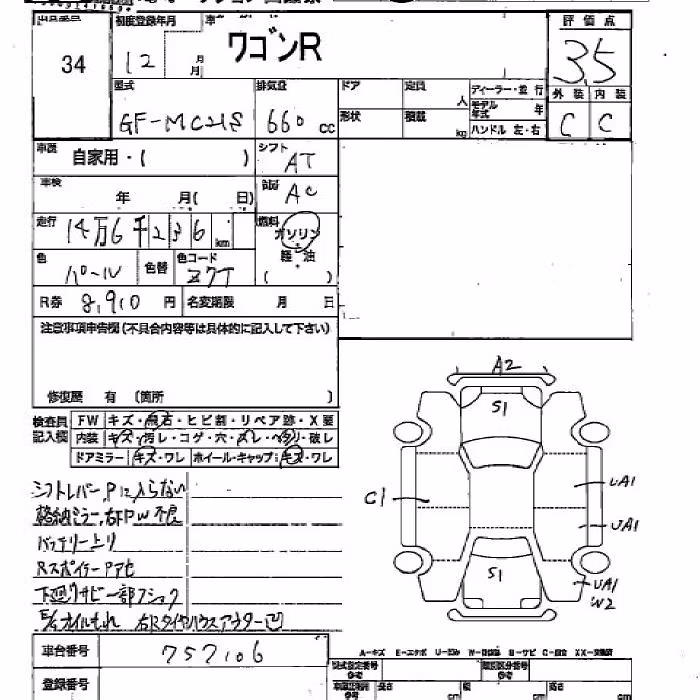 初度登録年月
評価点
34
12
月
月
ワゴンR
3.5
型式
排気量
ドア
定員
人
ディーラー・並行
外装 内装
GF-MC21S
660 cc
形状
積載
kg
モデル年式
年
ハンドル 左・右
C C
車歴
自家用・( )
シフト
AT
車検
年 月( 日)
AC
走行
14万6千236 km
燃料
ガソリン
軽油
( )
色
パール
色替
色コード
Z7T
R券 8,910 円
名変期限 月 日
注意事項申告欄(不具合内容等は具体的に記入して下さい)
修復歴 有 (箇所 )
検査員
記入欄
FW キズ・飛石・ヒビ割・リペア跡・X要
内装 キズ・汚レ・コゲ・穴・スレ・ヘタリ・破レ
ドアミラー キズ・ワレ ホイール・キャップ キズ・ワレ
シフトレバーPに入らない
格納ミラー、右FPW不良
バッテリー上り
RスポイラーPアセ
下廻りサビ 一部フショク
E/gオイルもれ 右Rタイヤハウスアウター凹
A2
S1
C1
UA1
UA1
S1
UA1
W2
車台番号 757106
登録番号
A-キズ E-エクボ U-凹み
型式指定番号
類別区分番号
長さ cm 幅 cm 高さ cm